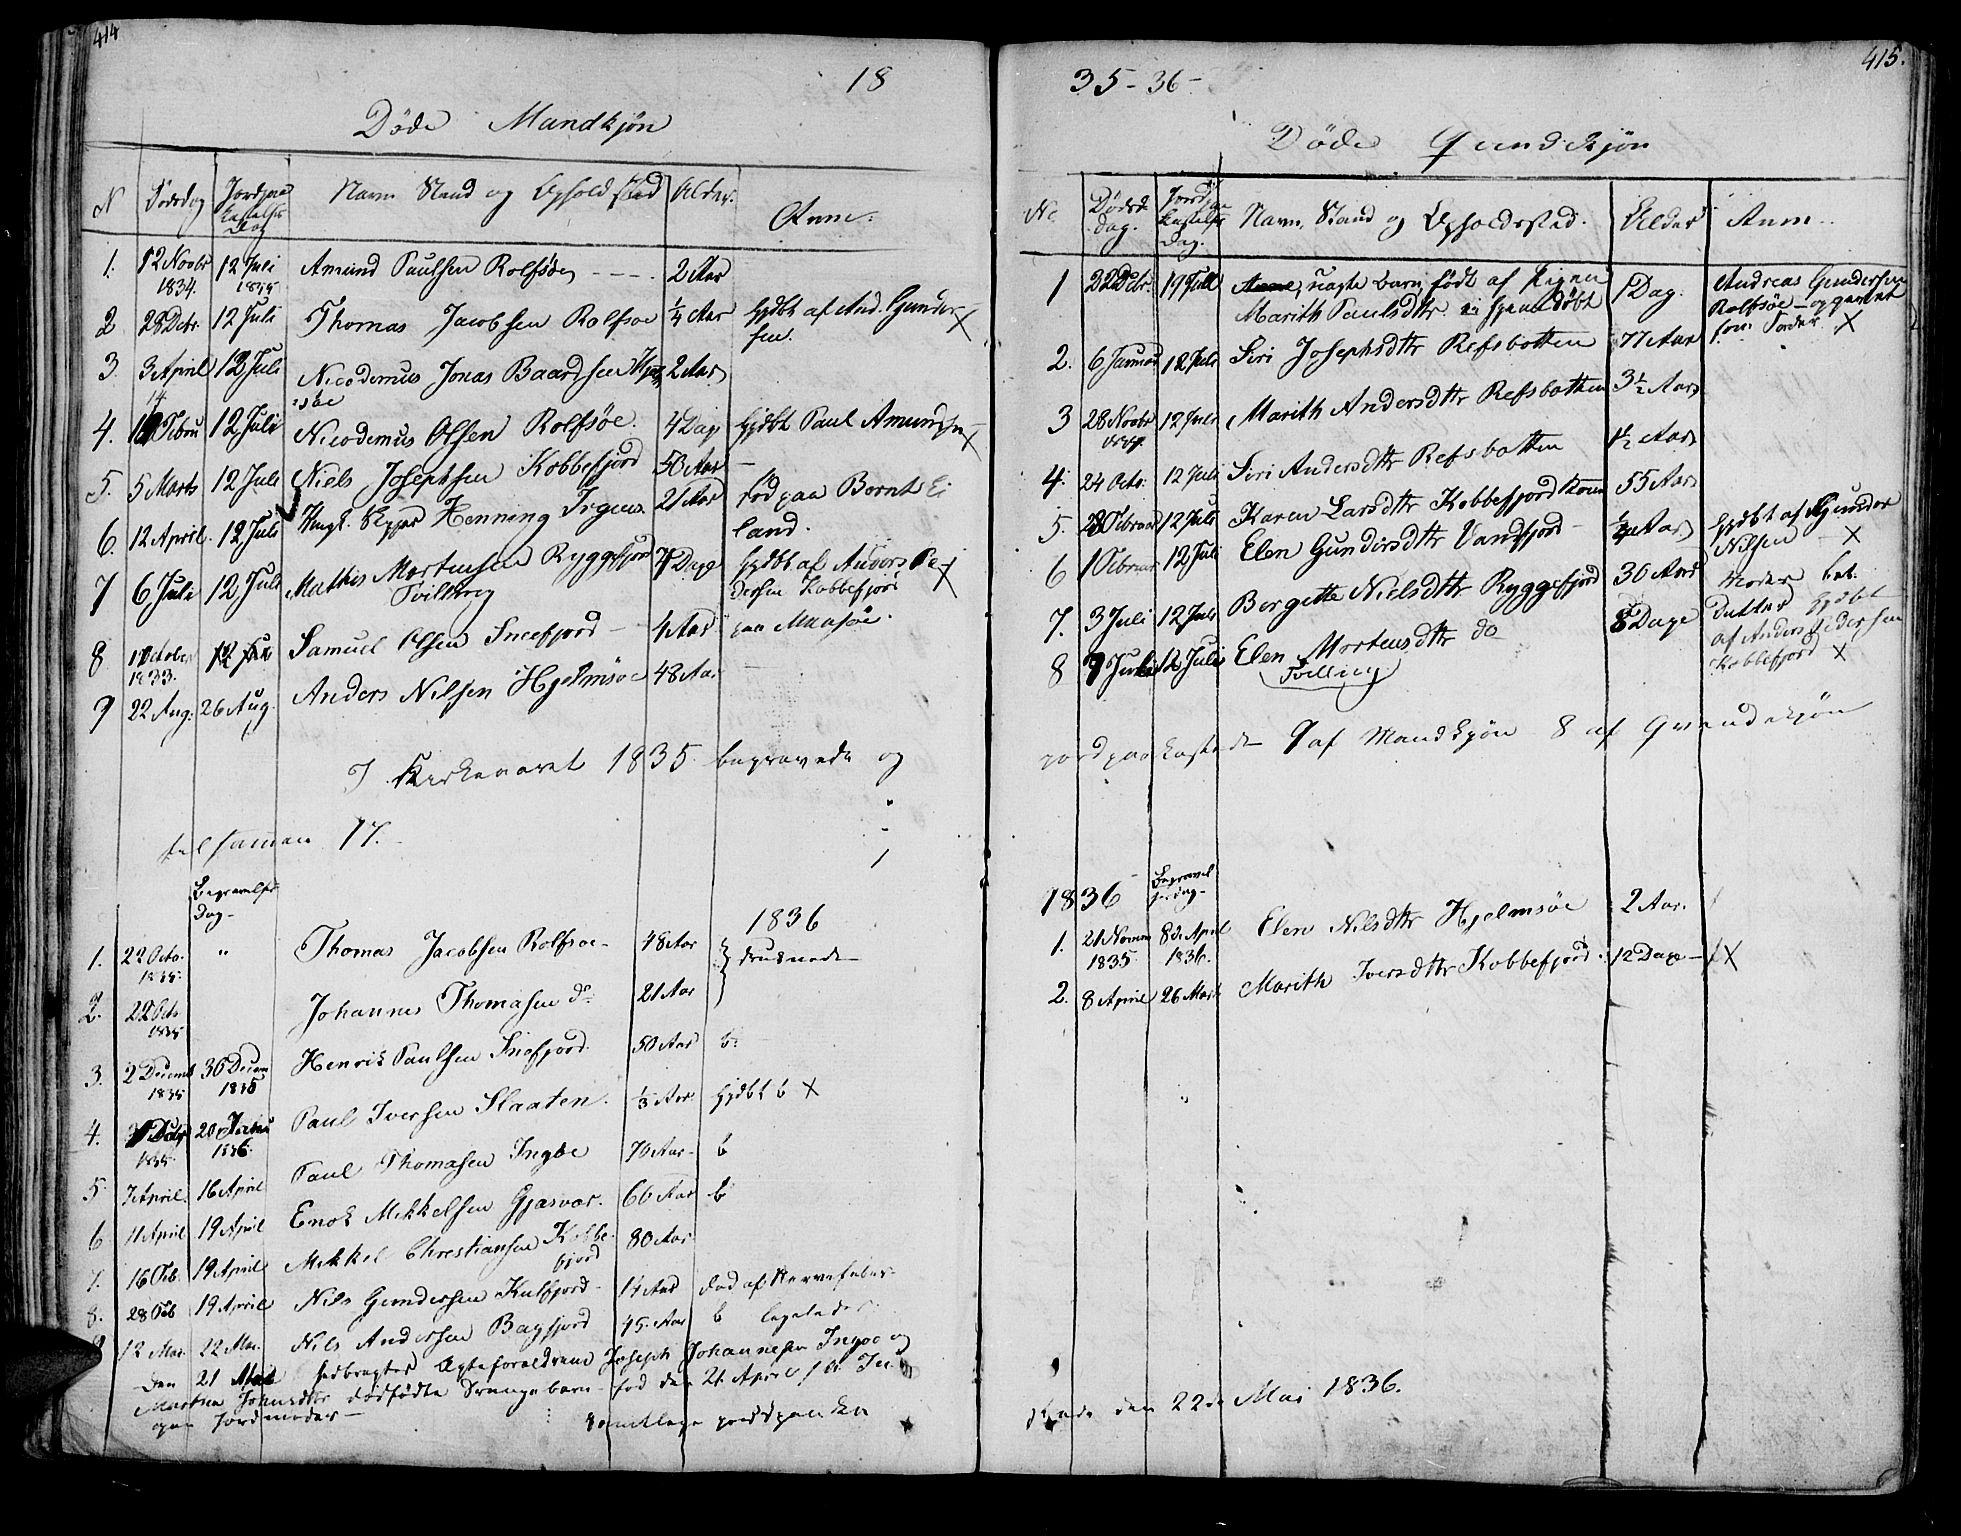 414
18
Døde Mandkjøn
N Dødsdag Jordpaa Kastelses Dag Navn Stand og Opholdsted Alder. Anm:
1. 12 Novbr 1834. 12 Juli 1835 Amund Paulsen Rolfsøe - - - 2 Aar
2 28 Octr. 12 Juli Thomas Jacobsen Rolfsøe 1/4 Aar hjdbt af And. Gunder-
sen. X
3. 3 April 12 Juli Nicodemus Jonas Baardsen Hjelm 2 Aar
søe
4. 14 Febru 12 Juli Nicodemus Olsen Rolfsøe. 4 Dage hjdbt Paul Amundsen X
5. 5 Marts 12 Juli Niels Josephsen Kobbefjord 50 Aar —
6. 12 April 12 Juli Skipper Henning Irgens 21 Aar fød paa
land.
7 6 Juli 12 Juli Mathis Mortensen Ryggefjord 7 Dage hjdbt af Anders Pe-
Tvilling dersen Kobbefjord X
8 1 October 1833. 12 Juli Samuel Olsen Sneefjord — 4 Aar paa Maasøe.
9 22 Aug: 26 Aug. Anders Nilsen Hjelmsøe 48 Aar —
I Kirkeaaret 1835 begravede og
tilsamen 17.
Begravelses
Dag-
1836
1. 22 Octo. 1835. " Thomas Jacobsen Rolfsøe- 48 Aar } druknede
2. 22 Octo 1835 Johannes Thomasen do 21 Aar
3. 2 Decemb 1835 30 Decem 1835 Henrik Paulsen Snefjord. 50 Aar b.
4. 1835. 20 Janu 1836. Paul Iversen Slaaten. 1/3 Aar hjdbt b X
5 7 April. 16 April Paul Thomasen Ingøe 70 Aar- b
6 11 April 19 April Enok Mikkelsen Gjesvær. 66 Aar b
7. 16 Feb. 19 April Mikkel Christiansen Kobbe- 80 Aar
fjord
8. 28 Feb 19 April Nils Gundersen Kulfjord- 14 Aar Død af Nervefeber
9 12 Mai 22 Mai. Nils Andersen Bagfjord 45. Aar b ligeledes
Den 21 Mai Ægteforældrene Joseph Johannesen Ingøe og
Johnsdtr dødfødte Drengebarn- fød den 21 April
Jordmoder — jordpaaka
415.
35-36-
Døde Qvindekjøn
No Døds dag. Jordpaa Kastelses Dag. Navn, Stand og Opholdsted. Alder Anm.
1 22 19 Juli Anne, uægte barn, født af Pigen 1 Dag. Andreas Gundersen
Marith Paulsdtr. ei hjemmedøbt Rolfsøe — opgivet
som Fader X
2. 6 Januar 12 Juli Siri Josephsdtr Refsbotten 77 Aar
3 28 Novbr 1834 12 Juli Marith Andersdtr Refsbotten 3½ Aar
4. 24 Octo. 12 Juli Siri Andersdtr Refsbotten 1½ Aar
5. 28 Februar 12 Juli Karen Larsdtr Kobbefjord Kone 55 Aar
6 1 Februar 12 Juli Elen Gundersdtr Vandfjord - 1/4 Aar hjdbt af Gunder
Nilsen — X
7. 3 Juli 12 Juli Bergitte Nielsdtr Ryggefjord 30 Aar Moder bet.
8 7 Juli 12 Juli Elen Mortensdtr do 8 Dage Datter hjdbt
Tvilling af Anders Pedersen
Kobbefjord X
jordpaakastede 9 af Mandkjøn 8 af Qvindekjøn
1836 Begravel
sesdag-
1. 21 Novem 1835 8de April 1836. Elen Nilsdtr Hjelmsøe 2 Aar.
2. 8 April 26 Mai Marith Iversdtr Kobbefjord. 12 Dage — X
stede den 22de Mai 1836.